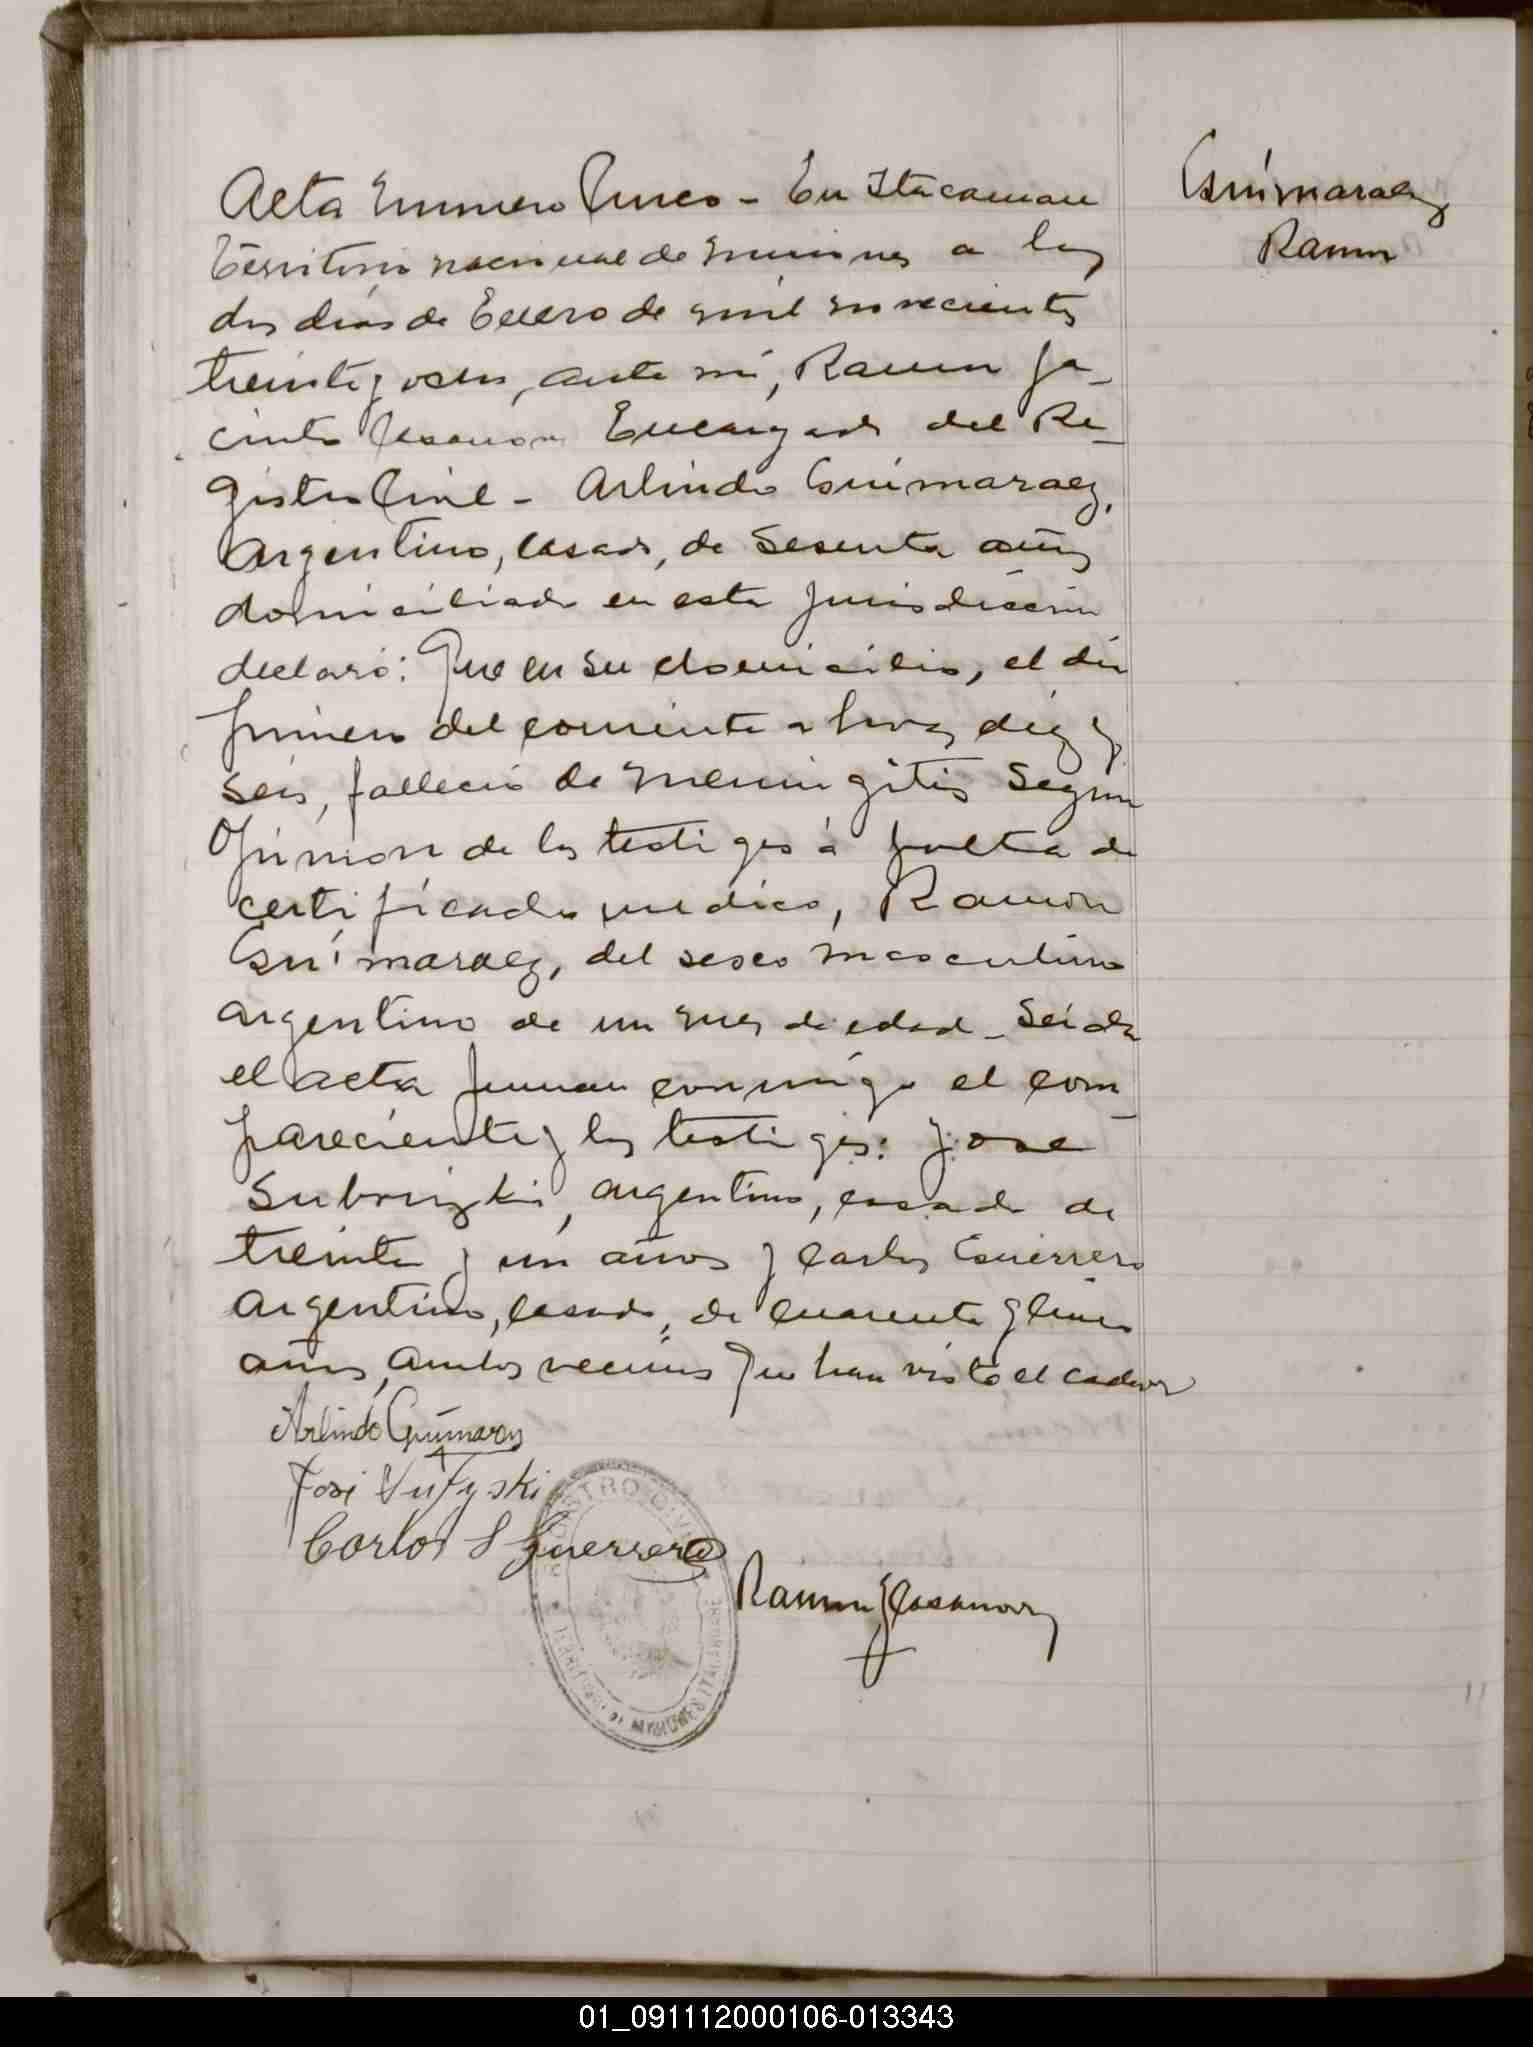 Acta Numero Cinco - En Itacaruare
Territorio nacional de Misiones a los
dos dias de Enero de mil novecientos
treinta y ocho, ante mi, Ramon Ja-
cinto Casanova Encargado del Re-
gistro Civil - Arlindo Guimaraez,
argentino, casado, de sesenta años
domiciliado en esta jurisdicción
declaró: Que en su domicilio, el dia
primero del corriente a horas diez y
seis, falleció de meningitis segun
opinion de los testigos á falta de
certificado medico, Ramón
Guimaraez, del sexo masculino
argentino de un mes de edad - Leida
el acta firman conmigo el com-
pareciente y los testigos: José
argentino, casado de
treinta y un años y Carlos Guerrero
argentino, casado, de cuarenta y cinco
años, ambos vecinos que han visto el cadaver
Arlindo Guimaraez
José
Carlos S Guerrero
Ramon J Casanova
REGISTRO CIVIL
Guimaraez
Ramon
01_091112000106-013343